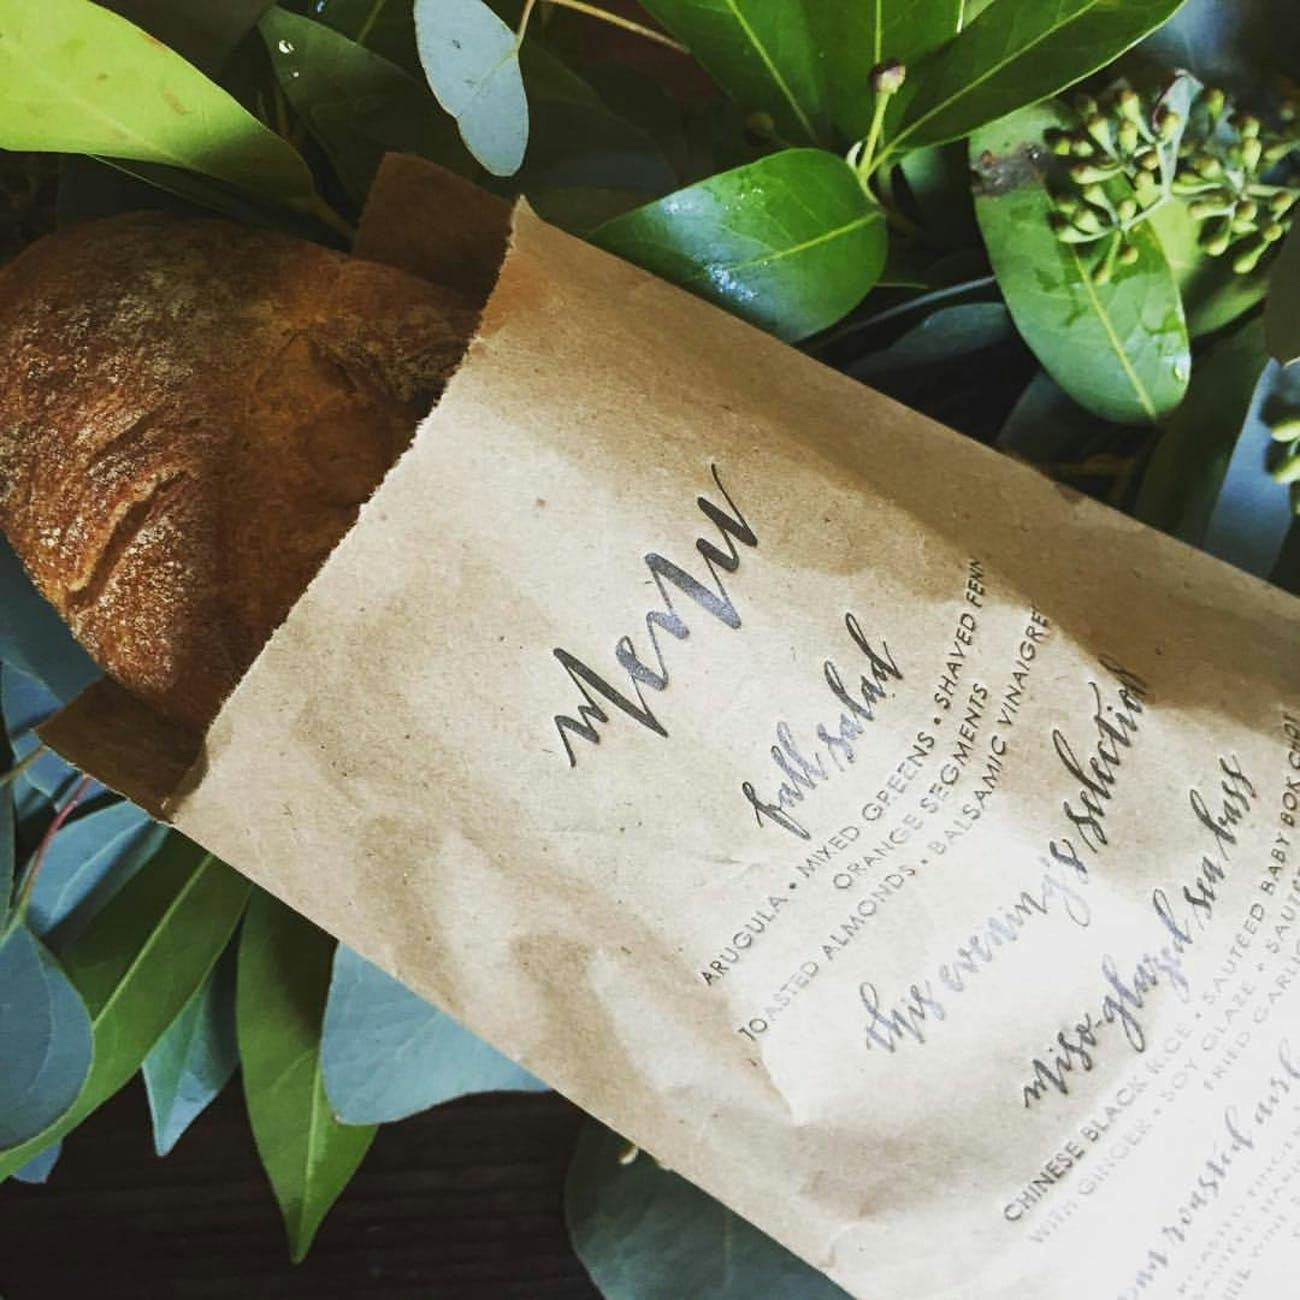 Menu
fall salad
ARUGULA • MIXED GREENS • SHAVED FENN
ORANGE SEGMENTS
TOASTED ALMONDS • BALSAMIC VINAIGRE
this evening's selection
miso-glazed sea bass
CHINESE BLACK RICE • SAUTÉED BABY BOK CHOY
with GINGER • SOY GLAZE •
FRIED GARLIC
roasted